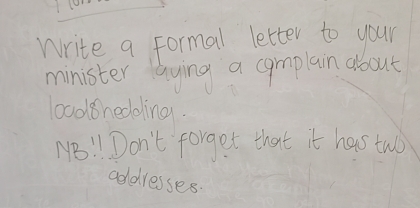 Write a Formal letter to your
minister laying a complain about
loadshedding.
NB!! Don't forget that it has two
addresses.